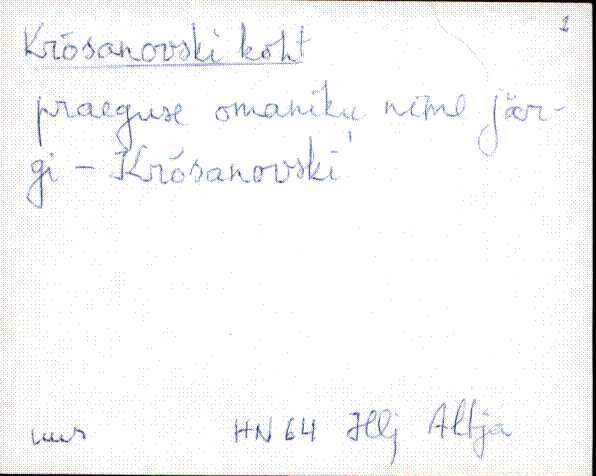 1
Krósanovski koht
praeguse omaniku nime jär-
gi – Krósanovski'
HN 64 Hlj Altja